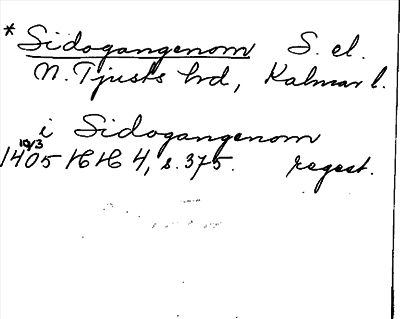 * Sidogangenom S. el.
N. Tjusts hd, Kalmar l.
i Sidogangenom
19/3
1405 HH 4, s. 375. regest.